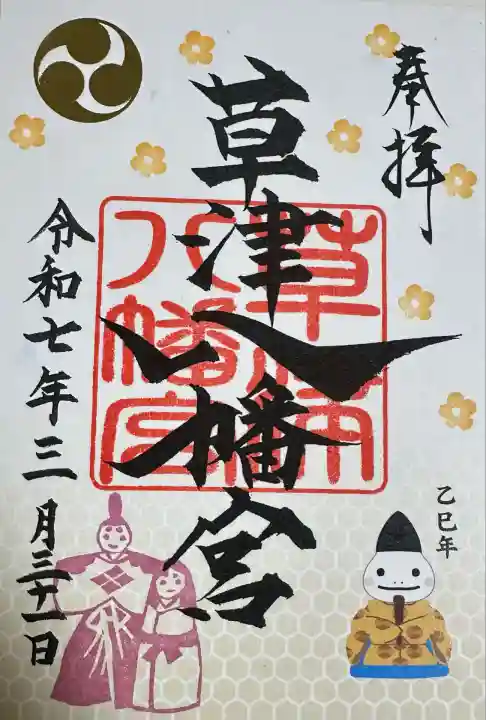 奉拝
乙巳年
草津八幡宮
草津
八幡宮
令和七年三月三十一日